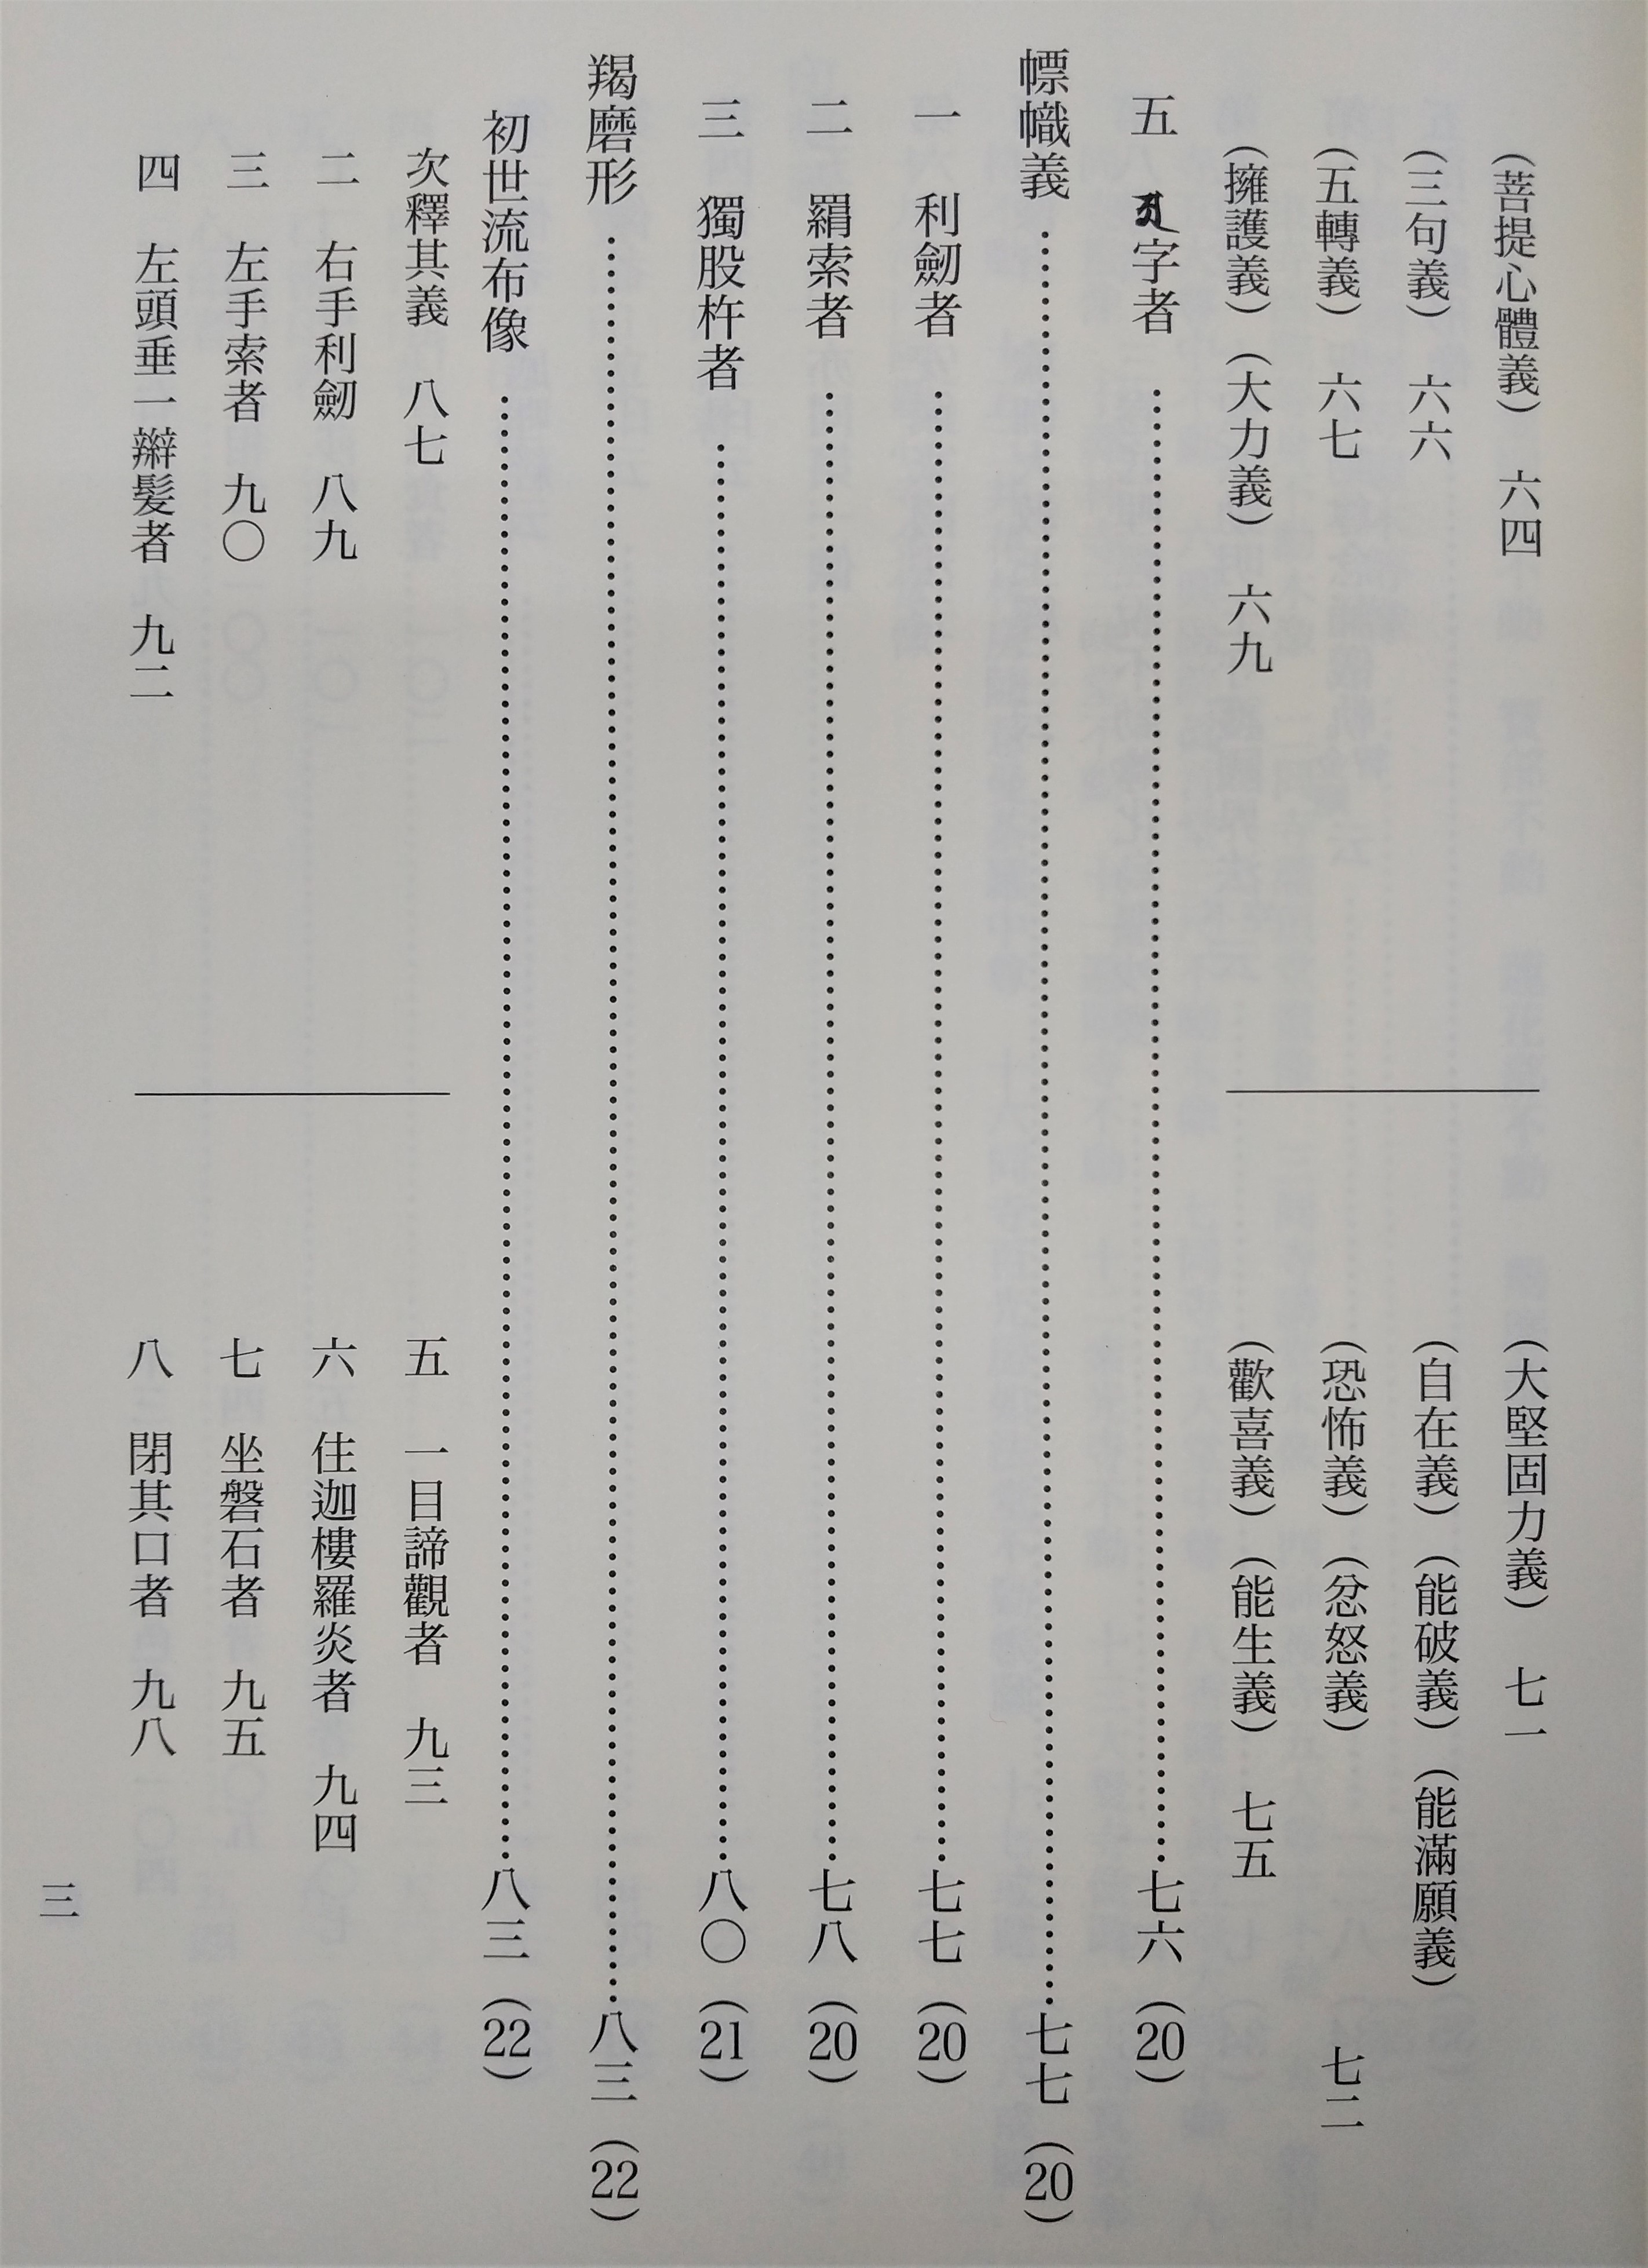 （菩提心體義）　六四
（三句義）　六六
（五轉義）　六七
（擁護義）（大力義）　六九
（大堅固力義）　七一
（自在義）（能破義）（能滿願義）
（恐怖義）（忿怒義）　七二
（歡喜義）（能生義）　七五
五　字者……七六（20）
幖幟義……七七（20）
一　利劒者……七七（20）
二　羂索者……七八（20）
三　獨股杵者……八〇（21）
羯磨形……八三（22）
初世流布像……八三（22）
次釋其義　八七
二　右手利劒　八九
三　左手索者　九〇
四　左頭垂一辮髮者　九二
五　一目諦觀者　九三
六　住迦樓羅炎者　九四
七　坐磐石者　九五
八　閉其口者　九八
三